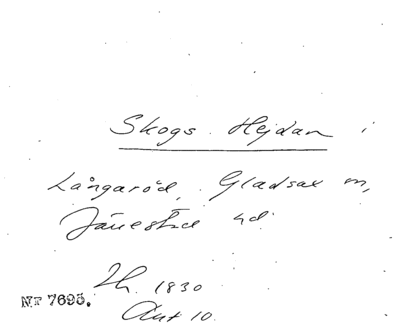 Skogs Hejdan i
Långaröd, Gladsax m,
Järrestad hd.
Th. 1830
Ant 10.
Nr 7695.